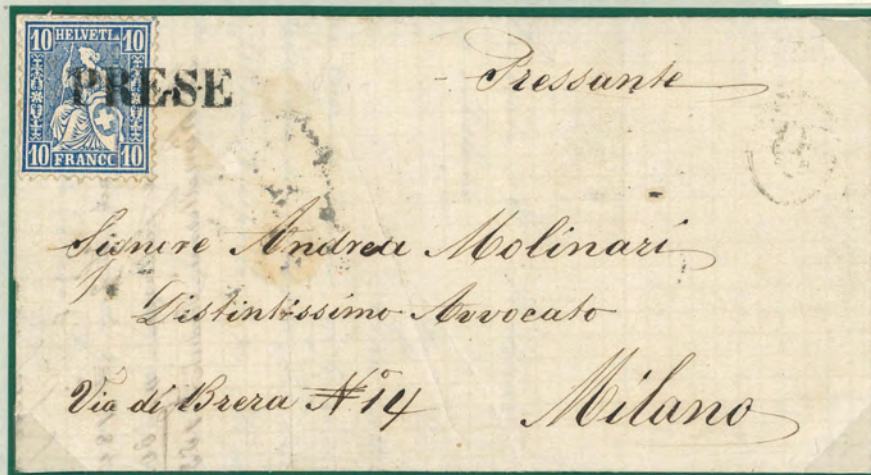 10 HELVETIA 10
PRESE
10 FRANCO 10
Pressante
Signore Andrea Molinari
Distintissimo Avvocato
Via di Brera N° 14
Milano